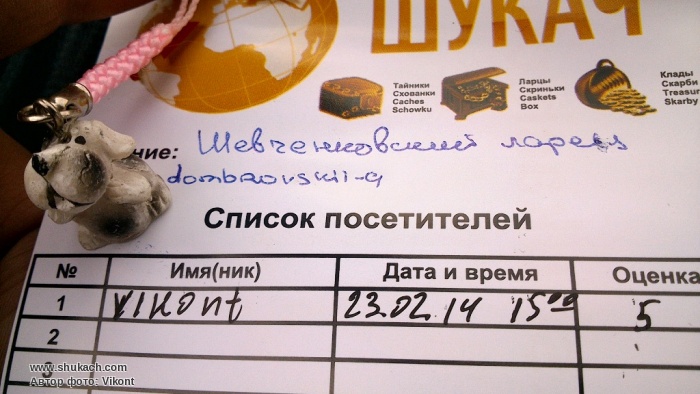 ШУКАЧ
Тайники
Схованки
Caches
Schowku
Ларцы
Скриньки
Caskets
Box
Клады
Скарби
Treasur
Skarby
ние: Шевченковский ларец
dombrovskii-g
Список посетителей
№ Имя(ник) Дата и время Оценка
1 VIKont 23.02.14 15 00 5
2
3
www.shukach.com
Автор фото: Vikont